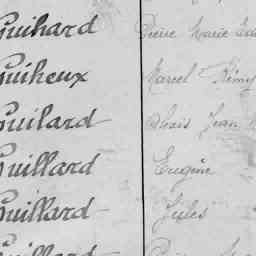 Guihard Pierre Marie
Guiheux Marcel Rémy
Guilard Alexis Jean
Guillard Eugène
Guillard Jules
Guillard